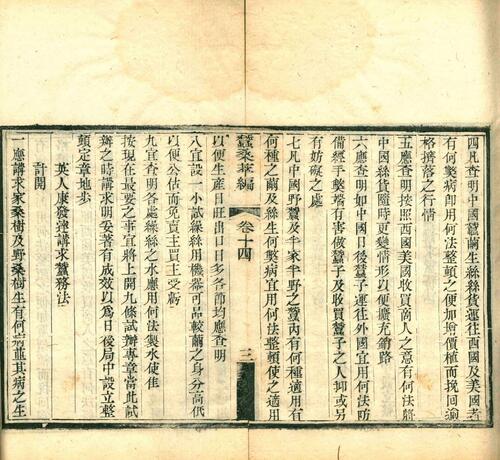 四凡查明中國繭生絲絲貨運往西國及美國者
有何獘病卽用何法整頓之便加增價植而挽回淪
格擠落之行情
五應查明按照西國美國收買商人之意有何法將
中國絲貨隨時更變情形以便擴充銷路
六應查明如中國日後蠶子運往外國宜用何法防
備經手獘端有害做蠶子及收買蠶子之人抑或另
有妨礙之處
七凡中國野蠶及半家半野之蠶內有何種適用有
何種之繭及絲生何獘病宜用何法整頓使之適用
蠶桑萃編
卷十四
三
以便生產日旺出口日多各節均應查明
八宜設一小試繅絲用機器可品較繭之身分高低
以便公估而免賣主買主受虧
九宜查明各處繅絲之水應用何法製水使佳
按現在最要之事宜將上開九條試辦專章當此試
辦之時講求明妥著有成效以爲日後局中設立整
頓定章地步
英人康發達講求蠶務法
計開
一應講求家桑樹及野桑樹生有何病並其病之生